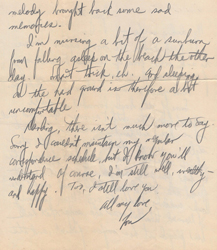 melody brought back some sad
memories.
I'm nursing a bit of a sunburn
from falling asleep on the beach the other
day. eh. sleeping
on the hard ground is therefore a bit
uncomfortable.
there isn't much more to say
Sorry I couldn't maintain my
correspondence schedule, but I know you'll
understand of course. I'm still well, wealthy
and happy. I still love you
all my love,